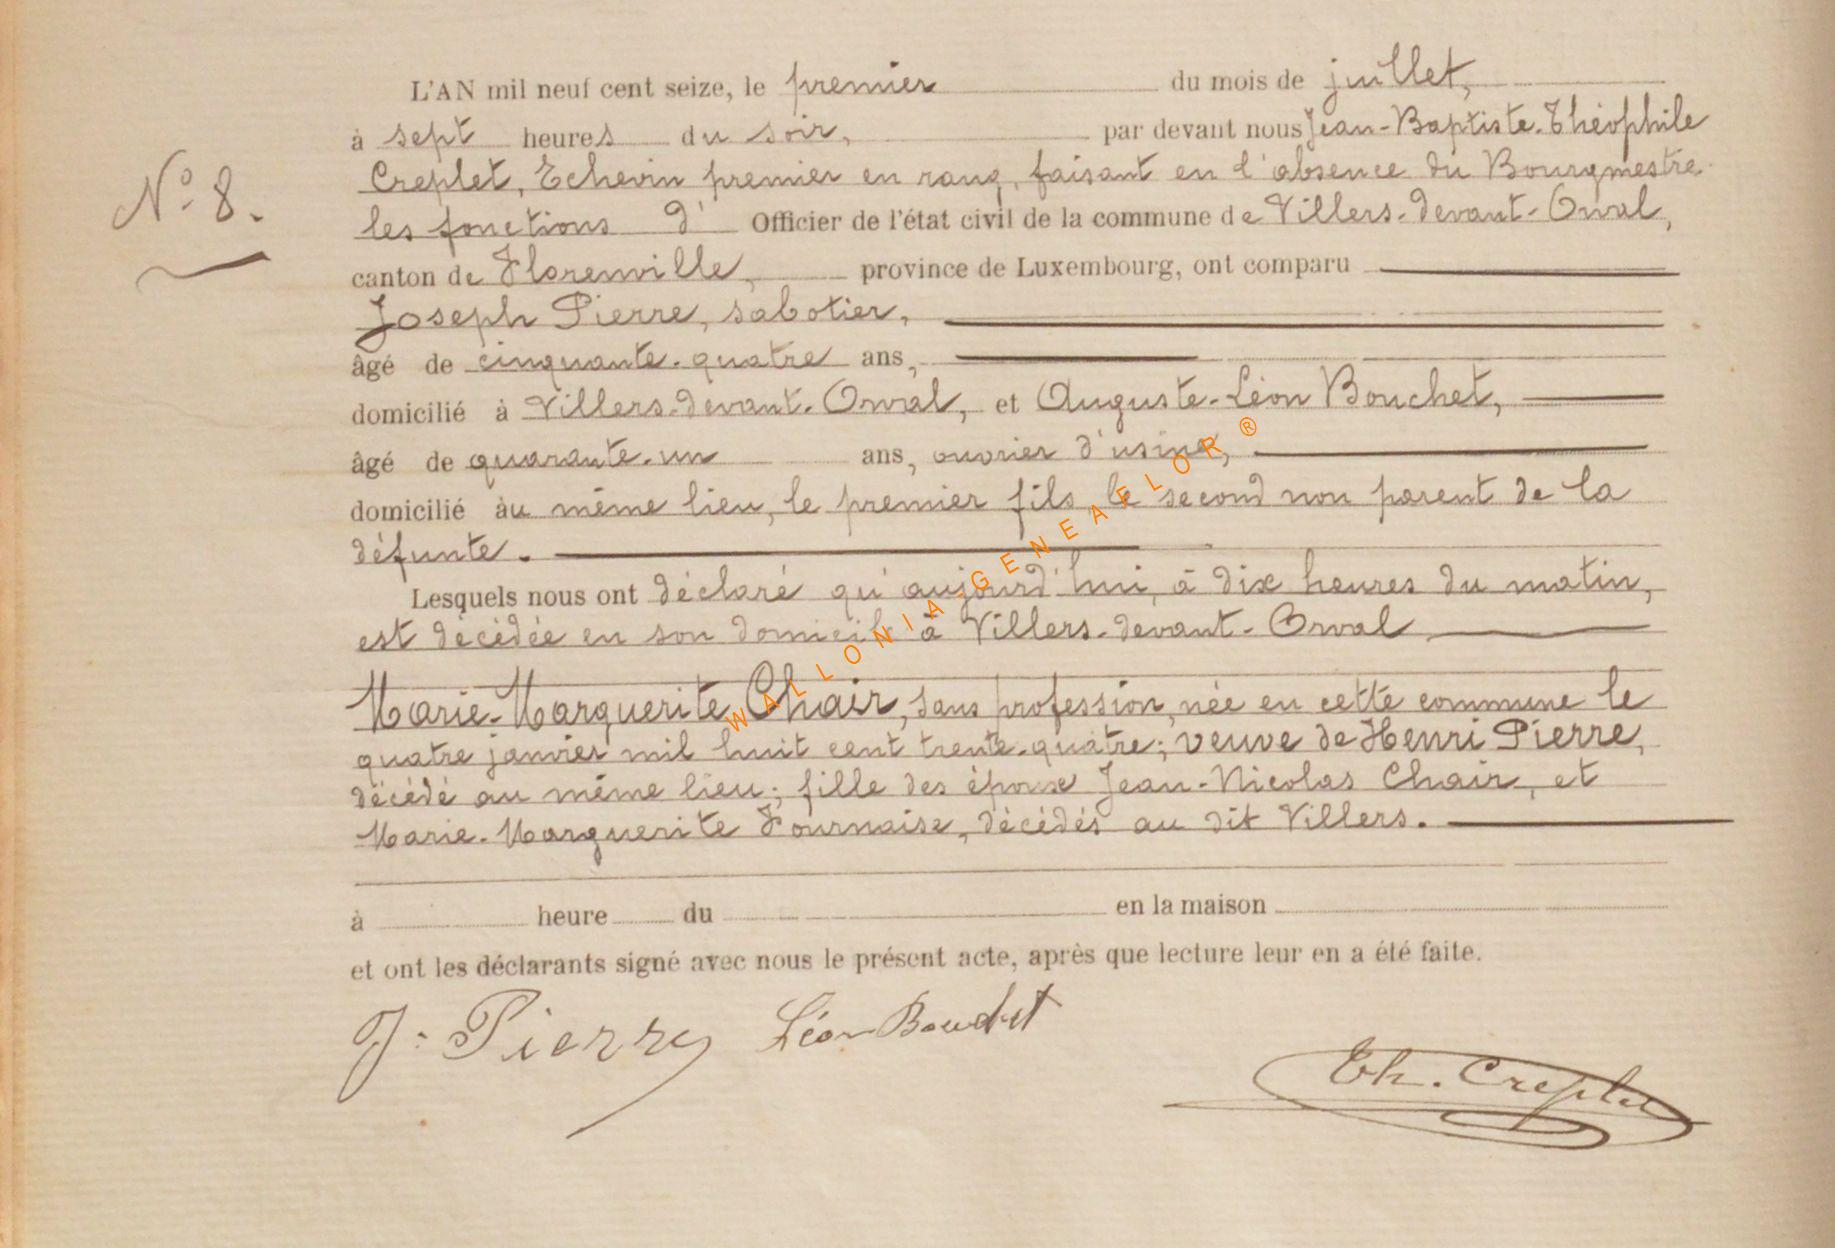 L'AN mil neuf cent seize, le premier du mois de juillet,
à sept heures du soir, par devant nous Jean-Baptiste-Théophile
N° 8.
Creplet, Echevin premier en rang, faisant en l'absence du Bourgmestre
les fonctions d' Officier de l'état civil de la commune de Villers-devant-Orval,
canton de Florenville, province de Luxembourg, ont comparu
Joseph Pierre, sabotier,
âgé de cinquante-quatre ans,
domicilié à Villers-devant-Orval, et Auguste-Léon Bouchet,
âgé de quarante-un ans, ouvrier d'usine,
domicilié au même lieu, le premier fils, le second non parent de la
défunte.
Lesquels nous ont déclaré qu'aujourd'hui, à dix heures du matin,
est décédée en son domicile à Villers-devant-Orval
Marie-Marguerite Chair, sans profession, née en cette commune le
quatre janvier mil huit cent trente-quatre; veuve de Henri Pierre,
décédé au même lieu; fille des époux Jean-Nicolas Chair, et
Marie-Marguerite Fournaise, décédés au dit Villers.
à heure du en la maison
et ont les déclarants signé avec nous le présent acte, après que lecture leur en a été faite.
J. Pierre Léon Bouchet
Th. Creplet
WALLONIA GENEAFLOR ®